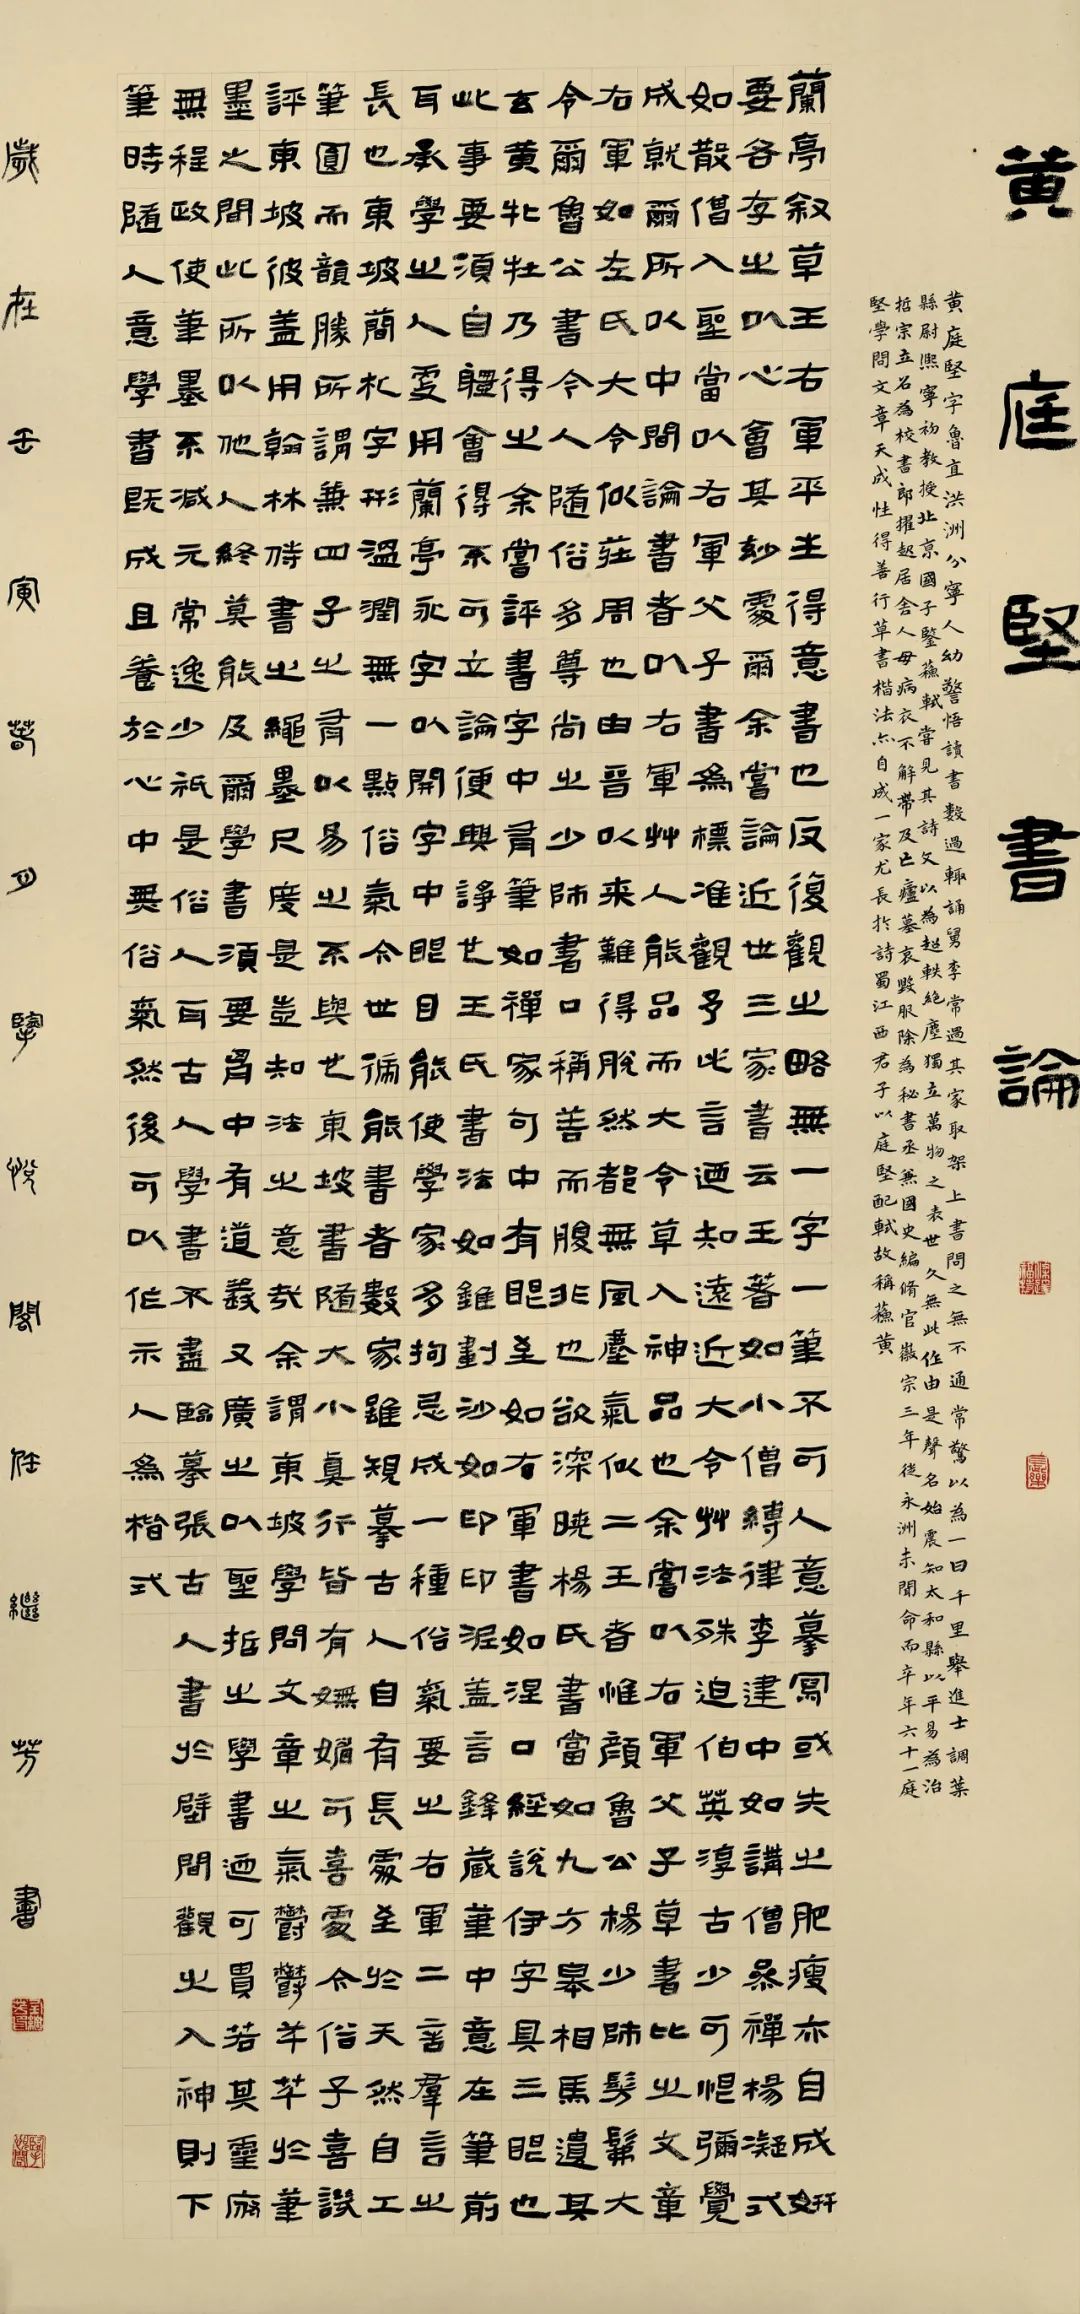 黄庭堅書論
黄庭堅字魯直洪洲分寧人幼警悟讀書數過輒誦舅李常過其家取架上書問之無不通常驚以為一日千里舉進士調葉
縣尉熙寧初教授北京國子監蘇軾嘗見其詩文以為超軼絕塵獨立萬物之表世久無此作由是聲名始震知太和縣以平易為治
哲宗立名為校書郎擢起居舍人母病衣不解帶及亡廬墓哀毀服除為秘書丞兼國史編脩官徽宗三年徙永洲未聞命而卒年六十一庭
堅學問文章天成性得善行草書楷法亦自成一家尤長於詩蜀江西君子以庭堅配軾故稱蘇黄
蘭亭叙草王右軍平生得意書也反復觀之略無一字一筆不可人意摹寫或失之肥瘦亦自成妍
要各存之以心會其妙處爾余嘗論近世三家書云王著如小僧縛律李建中如講僧參禪楊凝式
如散僧入聖當以右軍父子書為標准觀予此言迺知遠近大令艸法殊迫伯英淳古少可恨彌覺
成就爾所以中間論書者以右軍艸人能品而大令草入神品也余嘗以右軍父子草書比之文章
右軍如左氏大令似莊周也由晉以來難得脫然都無風塵氣似二王者惟顏魯公楊少師髣髴大
令爾魯公書令人隨俗多尊尚之少師書口稱善而腹非也欲深曉楊氏書當如九方皋相馬遺其
玄黄牝牡乃得之余嘗評書字中有筆如禪家句中有眼至如右軍書如涅口經說伊字具三眼也
此事要須自體會得不可立論便興諍世王氏書法如錐劃沙如印印泥蓋言鋒藏筆中意在筆前
耳承學之人更用蘭亭永字以開字中眼目能使學家多拘忌成一種俗氣要之右軍二言羣言之
長也東坡簡札字形溫潤無一點俗氣今世稱能書者數家雖規摹古人自有長處至於天然自工
筆圓而韻勝所謂兼四子之有以易之不與也東坡書隨大小真行皆有嫵媚可喜處今俗子喜譏
評東坡彼蓋用翰林侍書之繩墨尺度是豈知法之意哉余謂東坡學問文章之氣鬱鬱芊芊於筆
墨之間此所以他人終莫能及爾學書須要胸中有道義又廣之以聖哲之學書迺可貴若其靈府
無程政使筆墨不減元常逸少祇是俗人耳古人學書不盡臨摹張古人書於壁間觀之入神則下
筆時隨人意學書既成且養於心中無俗氣然後可以作示人為楷式
歲在壬寅菊月悅閣任繼芳書